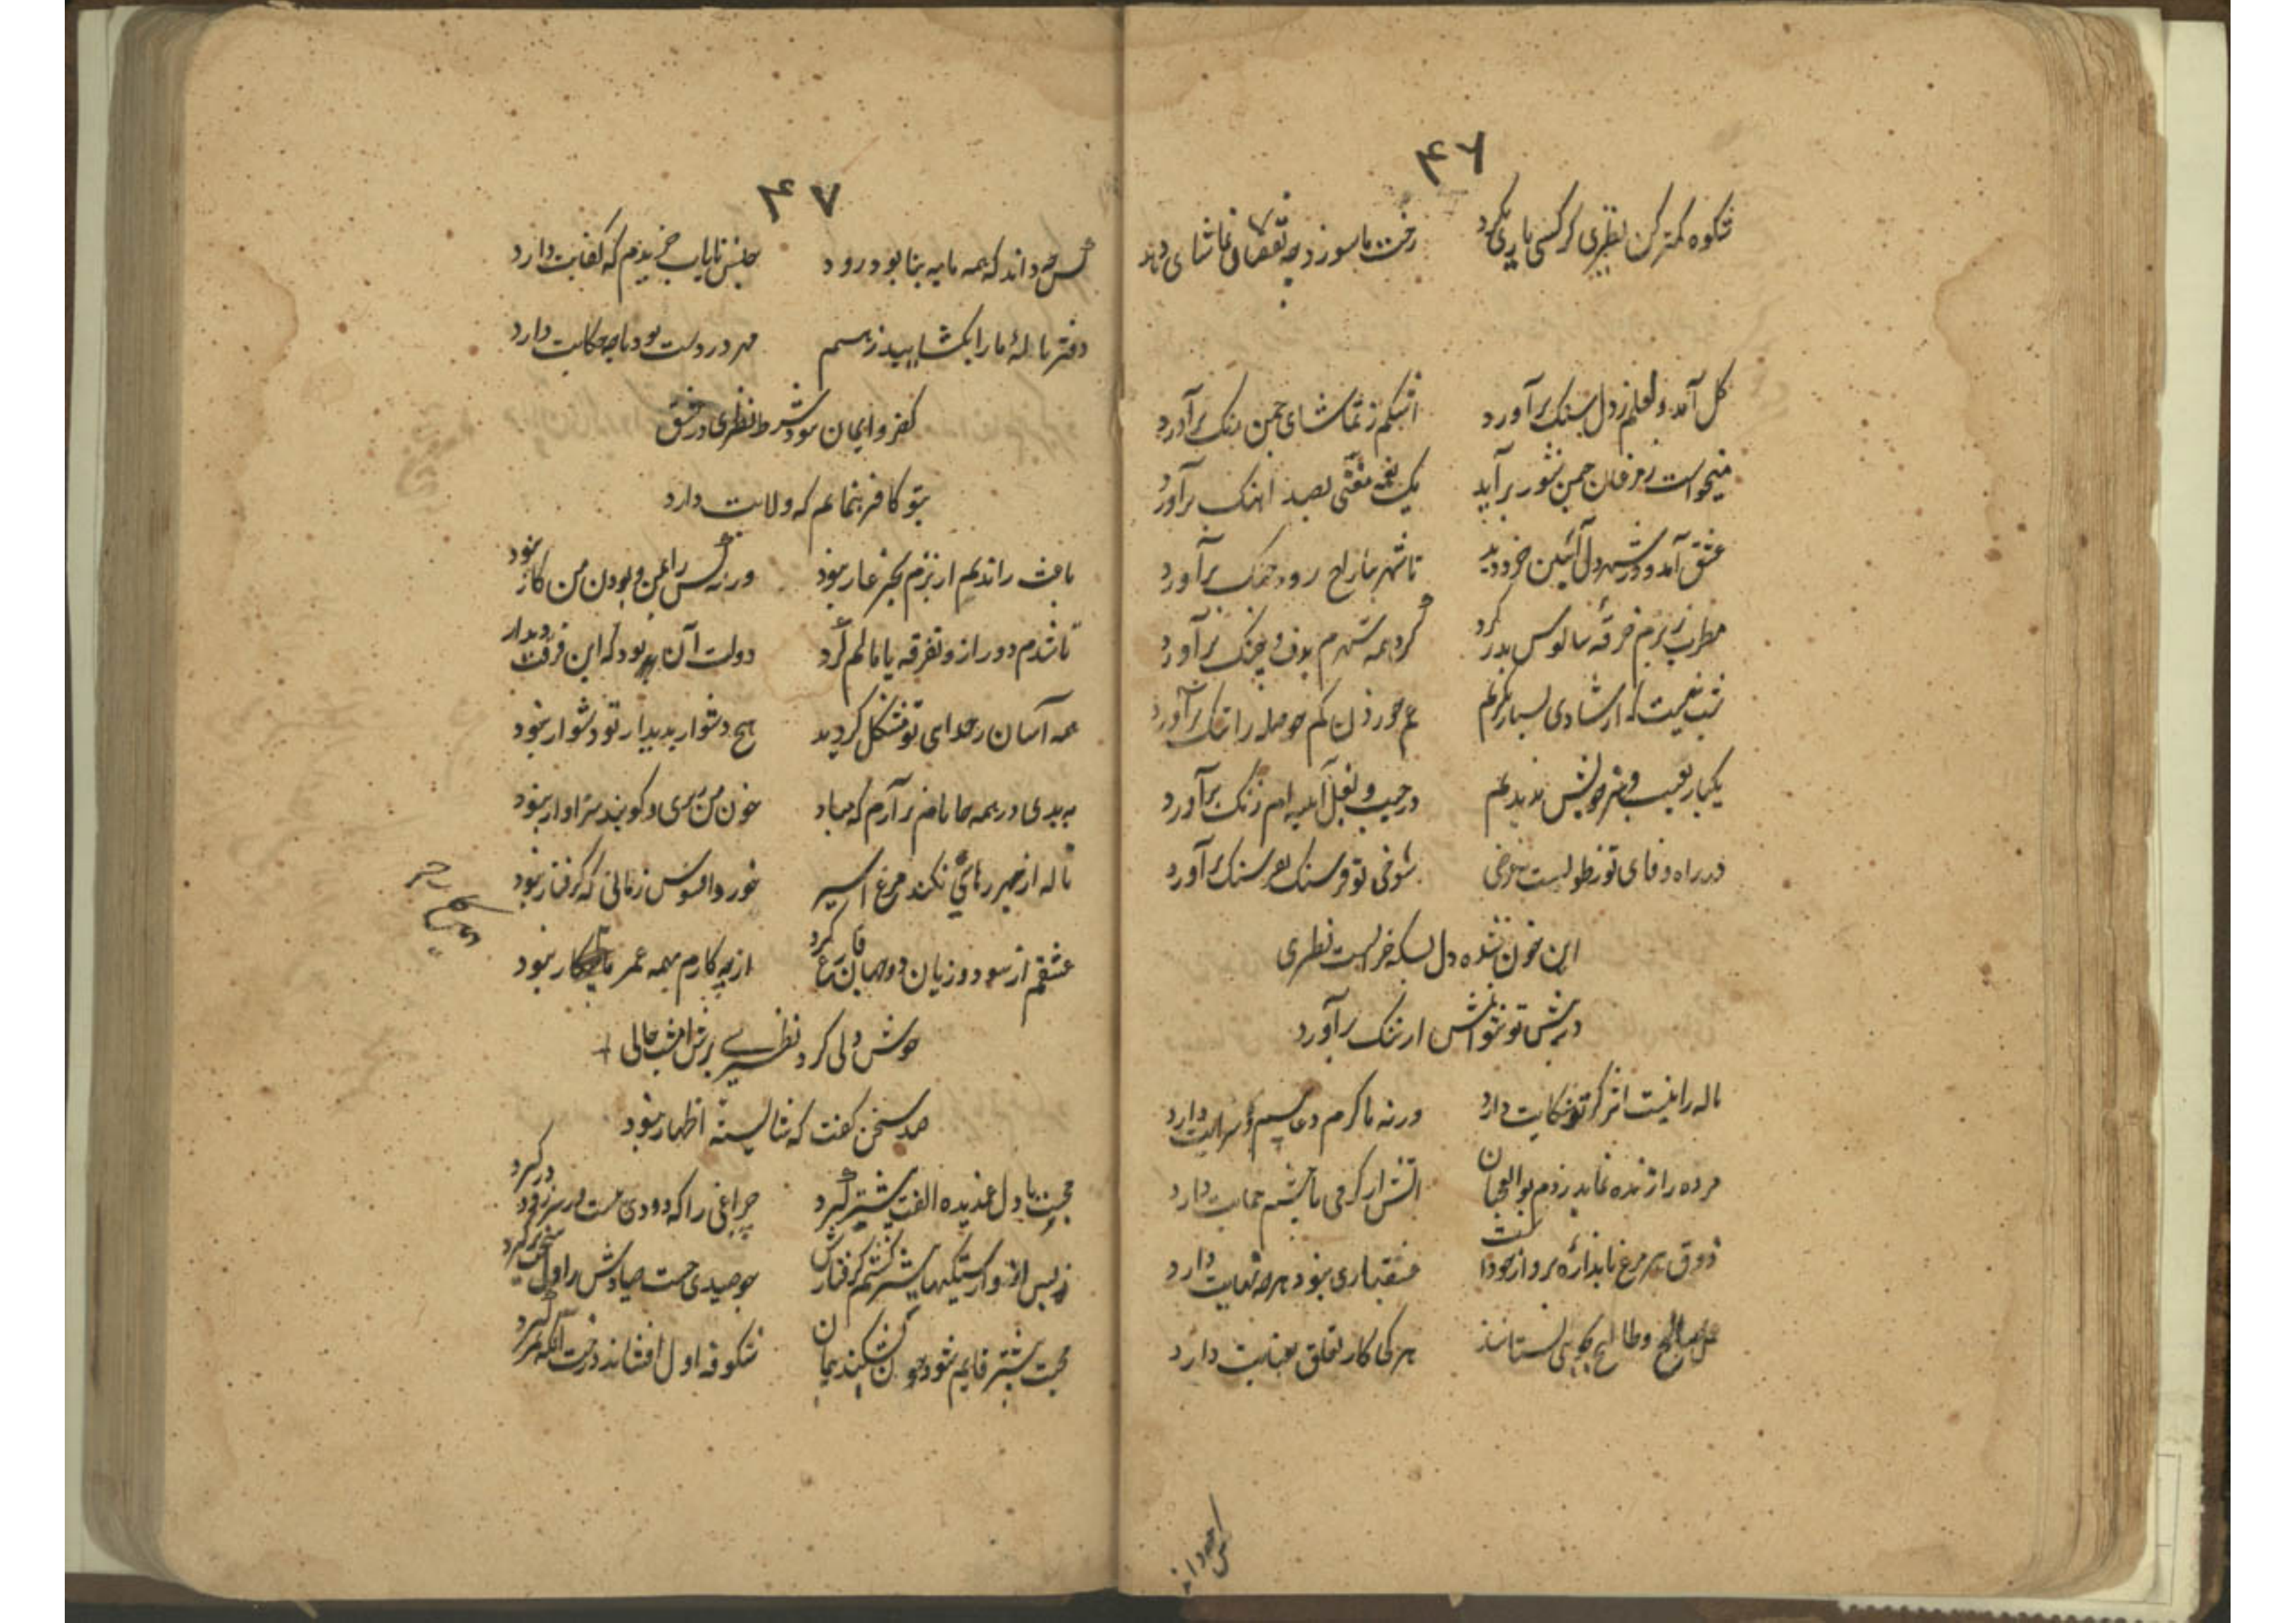 ۴۶
شکوه کمتر کن نظیری گر کسی یاری نکرد رخت ما سوزد چه نقصان تماشای دهد
گل آمد و لعلم ز دل سنک برآورد اشکم ز تماشای چمن رنک برآورد
میخواست ز مرغان چمن شور برآید یک نغمه مغنی بصد اهنک برآورد
عشق آمد و در شهر دل آئین خرد دید تا شهر بتاراج رود جنک برآورد
مطرب ز برم خرقه سالوس بدر کرد گرد همه شهرم بدف و چنک برآورد
غم خوردن کم حوصله را تنک برآورد
یکبار بعیب و هنر خویش ندیدیم در جیب و بغل آینه ام زنک برآورد
در راه وفای تو شوخی تو فرسنک بفرسنک برآورد
این خون شده دل بسکه خرابست نظیری
نتوانش از ننک برآورد
ناله را نیست اثر گر تو شکایت دارد ورنه ما گرم و سرایت دارد
مرده را زنده نماید ز دم بوالعجبان حمایت دارد
ذوق هر مرغ باندازه پرواز خود است منقاری نبود هر چه نهایت دارد
صالح و طالح نستانند هر کی کار تعلق بعنایت دارد
کس چه داند
۴۷
کس چه داند که همه مایه بنابود رود جنس نایاب خریدم که کفایت دارد
دفتر ناله ما را بکشایید ز هم هر درد دست بود تا چه حکایت دارد
کفر و ایمان بود شرط نظیری در عشق
بتو کافر بنمایم که ولایت دارد
باعث راندنم از بزم بجز عار نبود ورنه کس را غمی و بودن من کار نبود
تا شدم دور ازو تفرقه پامالم کرد دولت آن بود که این فرقت دیدار نبود
همه آسان ز جدای تو مشکل گردید هیچ دشوار بدیدار تو دشوار نبود
به بدی در همه جا نام برآرم که مباد خون من ریزی و گویند سزاوار نبود
ناله از بهر رهایی نکند مرغ اسیر خورد افسوس زمانی که گرفتار نبود
عشقم از سود و زیان دو جهان فارغ کرد از چه کارم همه عمر باین کار نبود
خوش دلی کرد نظیری
صد سخن گفت که شایسته اظهار نبود
محبت با دل غمدیده الفت بیشتر گیرد چراغی را که دودی هست در سر زود در گیرد
پس از وارستگیها بیشتر گشتم گرفتارش چو صیدی جست صیادش ز اول سخت تر گیرد
محبت بیشتر قایم شود چون بشکند پیمان شکوفه اول افشاند درخت آنکه ثمر گیرد